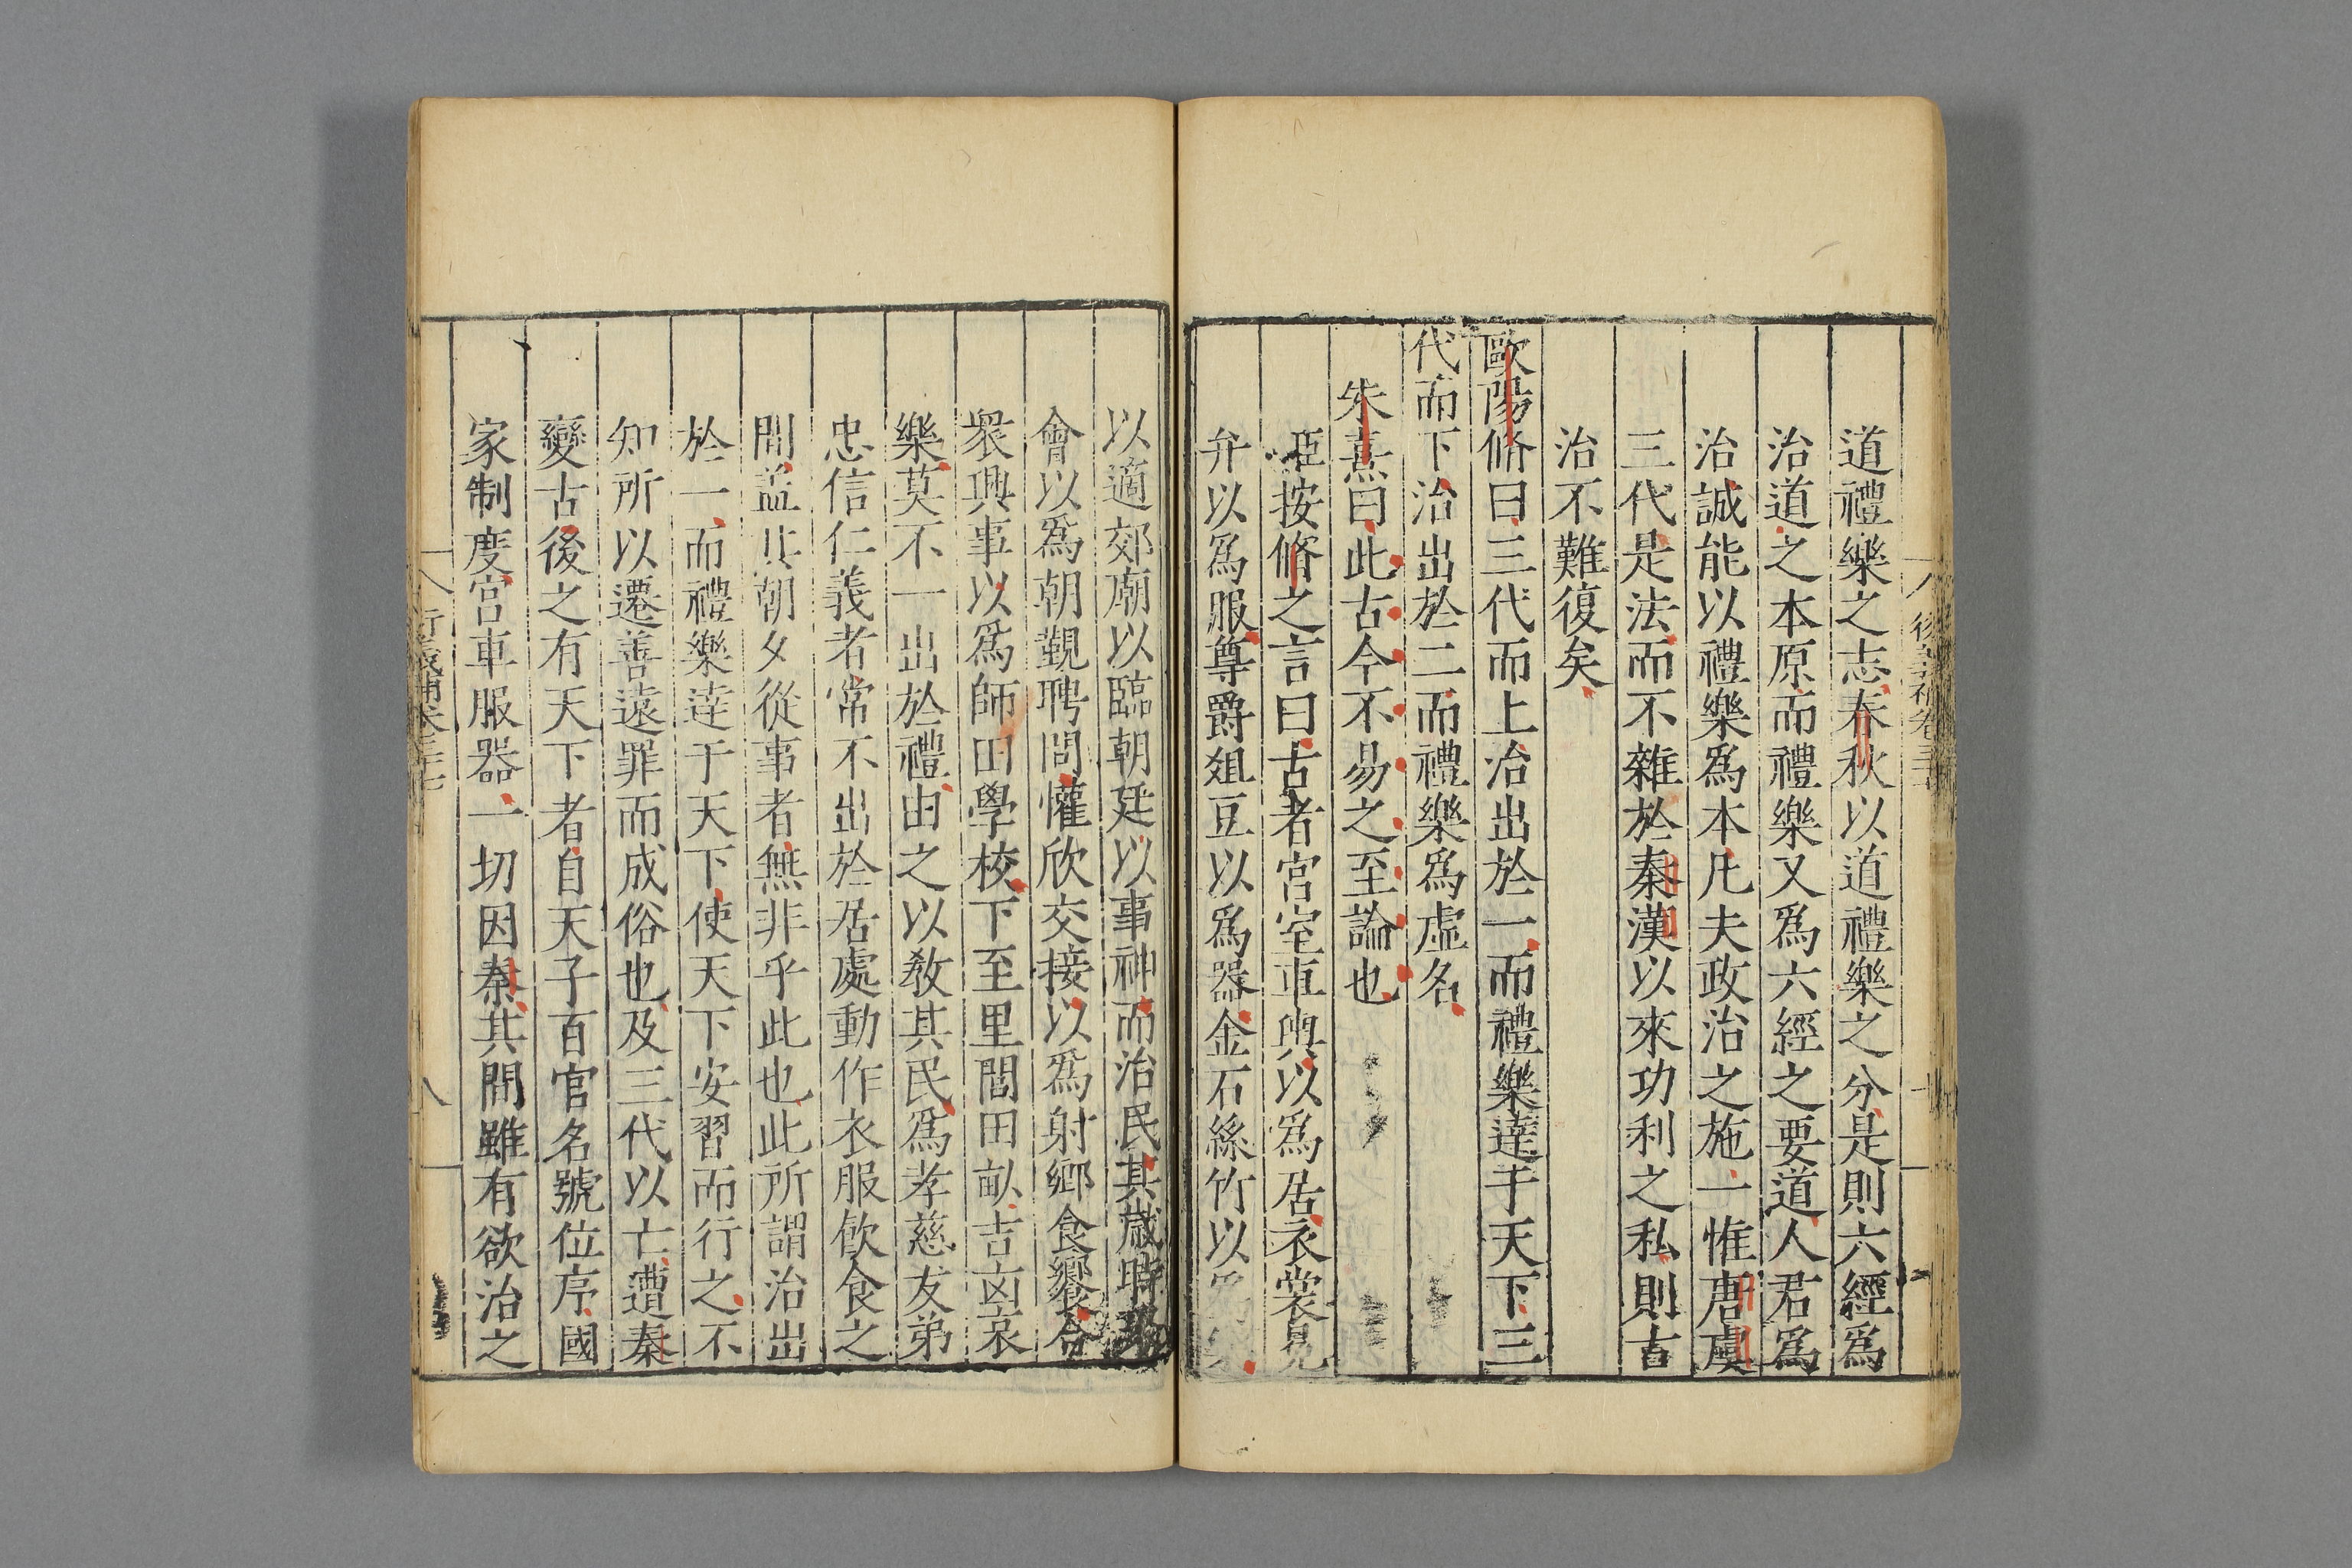 道禮樂之志春秋以道禮樂之分是則六經爲
治道之本原而禮樂又爲六經之要道人君爲
治誠能以禮樂爲本凡夫政治之施一惟唐虞
三代是法而不雜於秦漢以來功利之私則古
治不難復矣
歐陽脩曰三代而上治出於一而禮樂達于天下三
代而下治出於二而禮樂爲虛名
朱熹曰此古今不易之至論也
臣按脩之言曰古者宮室車輿以爲居衣裳冕
弁以爲服尊爵俎豆以爲器金石絲竹以爲樂
以適郊廟以臨朝廷以事神而治民其歲時聚
會以爲朝覲聘問懽欣交接以爲射鄉食饗合
衆興事以爲師田學校下至里閭田畝吉凶哀
樂莫不一出於禮由之以教其民爲孝慈友弟
忠信仁義者常不出於居處動作衣服飲食之
間蓋其朝夕從事者無非乎此也此所謂治出
於一而禮樂達于天下使天下安習而行之不
知所以遷善遠罪而成俗也及三代以亡遭秦
變古後之有天下者自天子百官名號位序國
家制度宮車服器一切因秦其間雖有欲治之
八